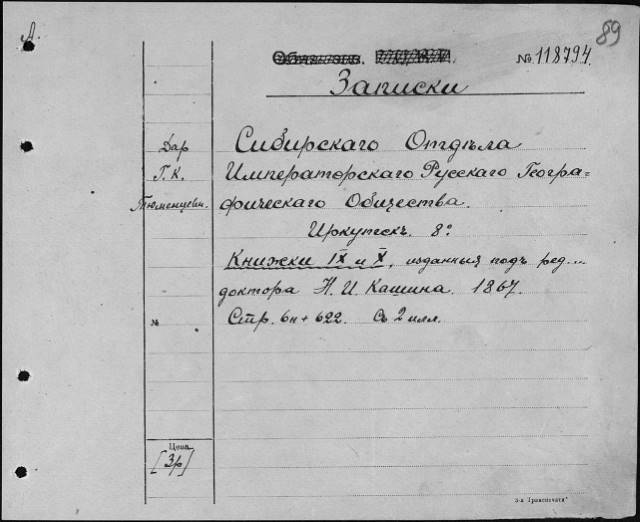 89
№ 118794.
Записки
Дар
Г. К.
Тюменцевъ.
Сибирскаго Отдѣла
Императорскаго Русскаго Геогра=
фическаго Общества.
Иркутскъ. 8°
Книжки IX и X, изданныя подъ ред...
доктора Н. И. Кашина. 1867.
Стр. 6н + 622. Съ 2 илл.
№
Цена
[3р]